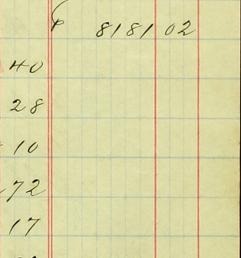 8181 02
40
28
10
72
17